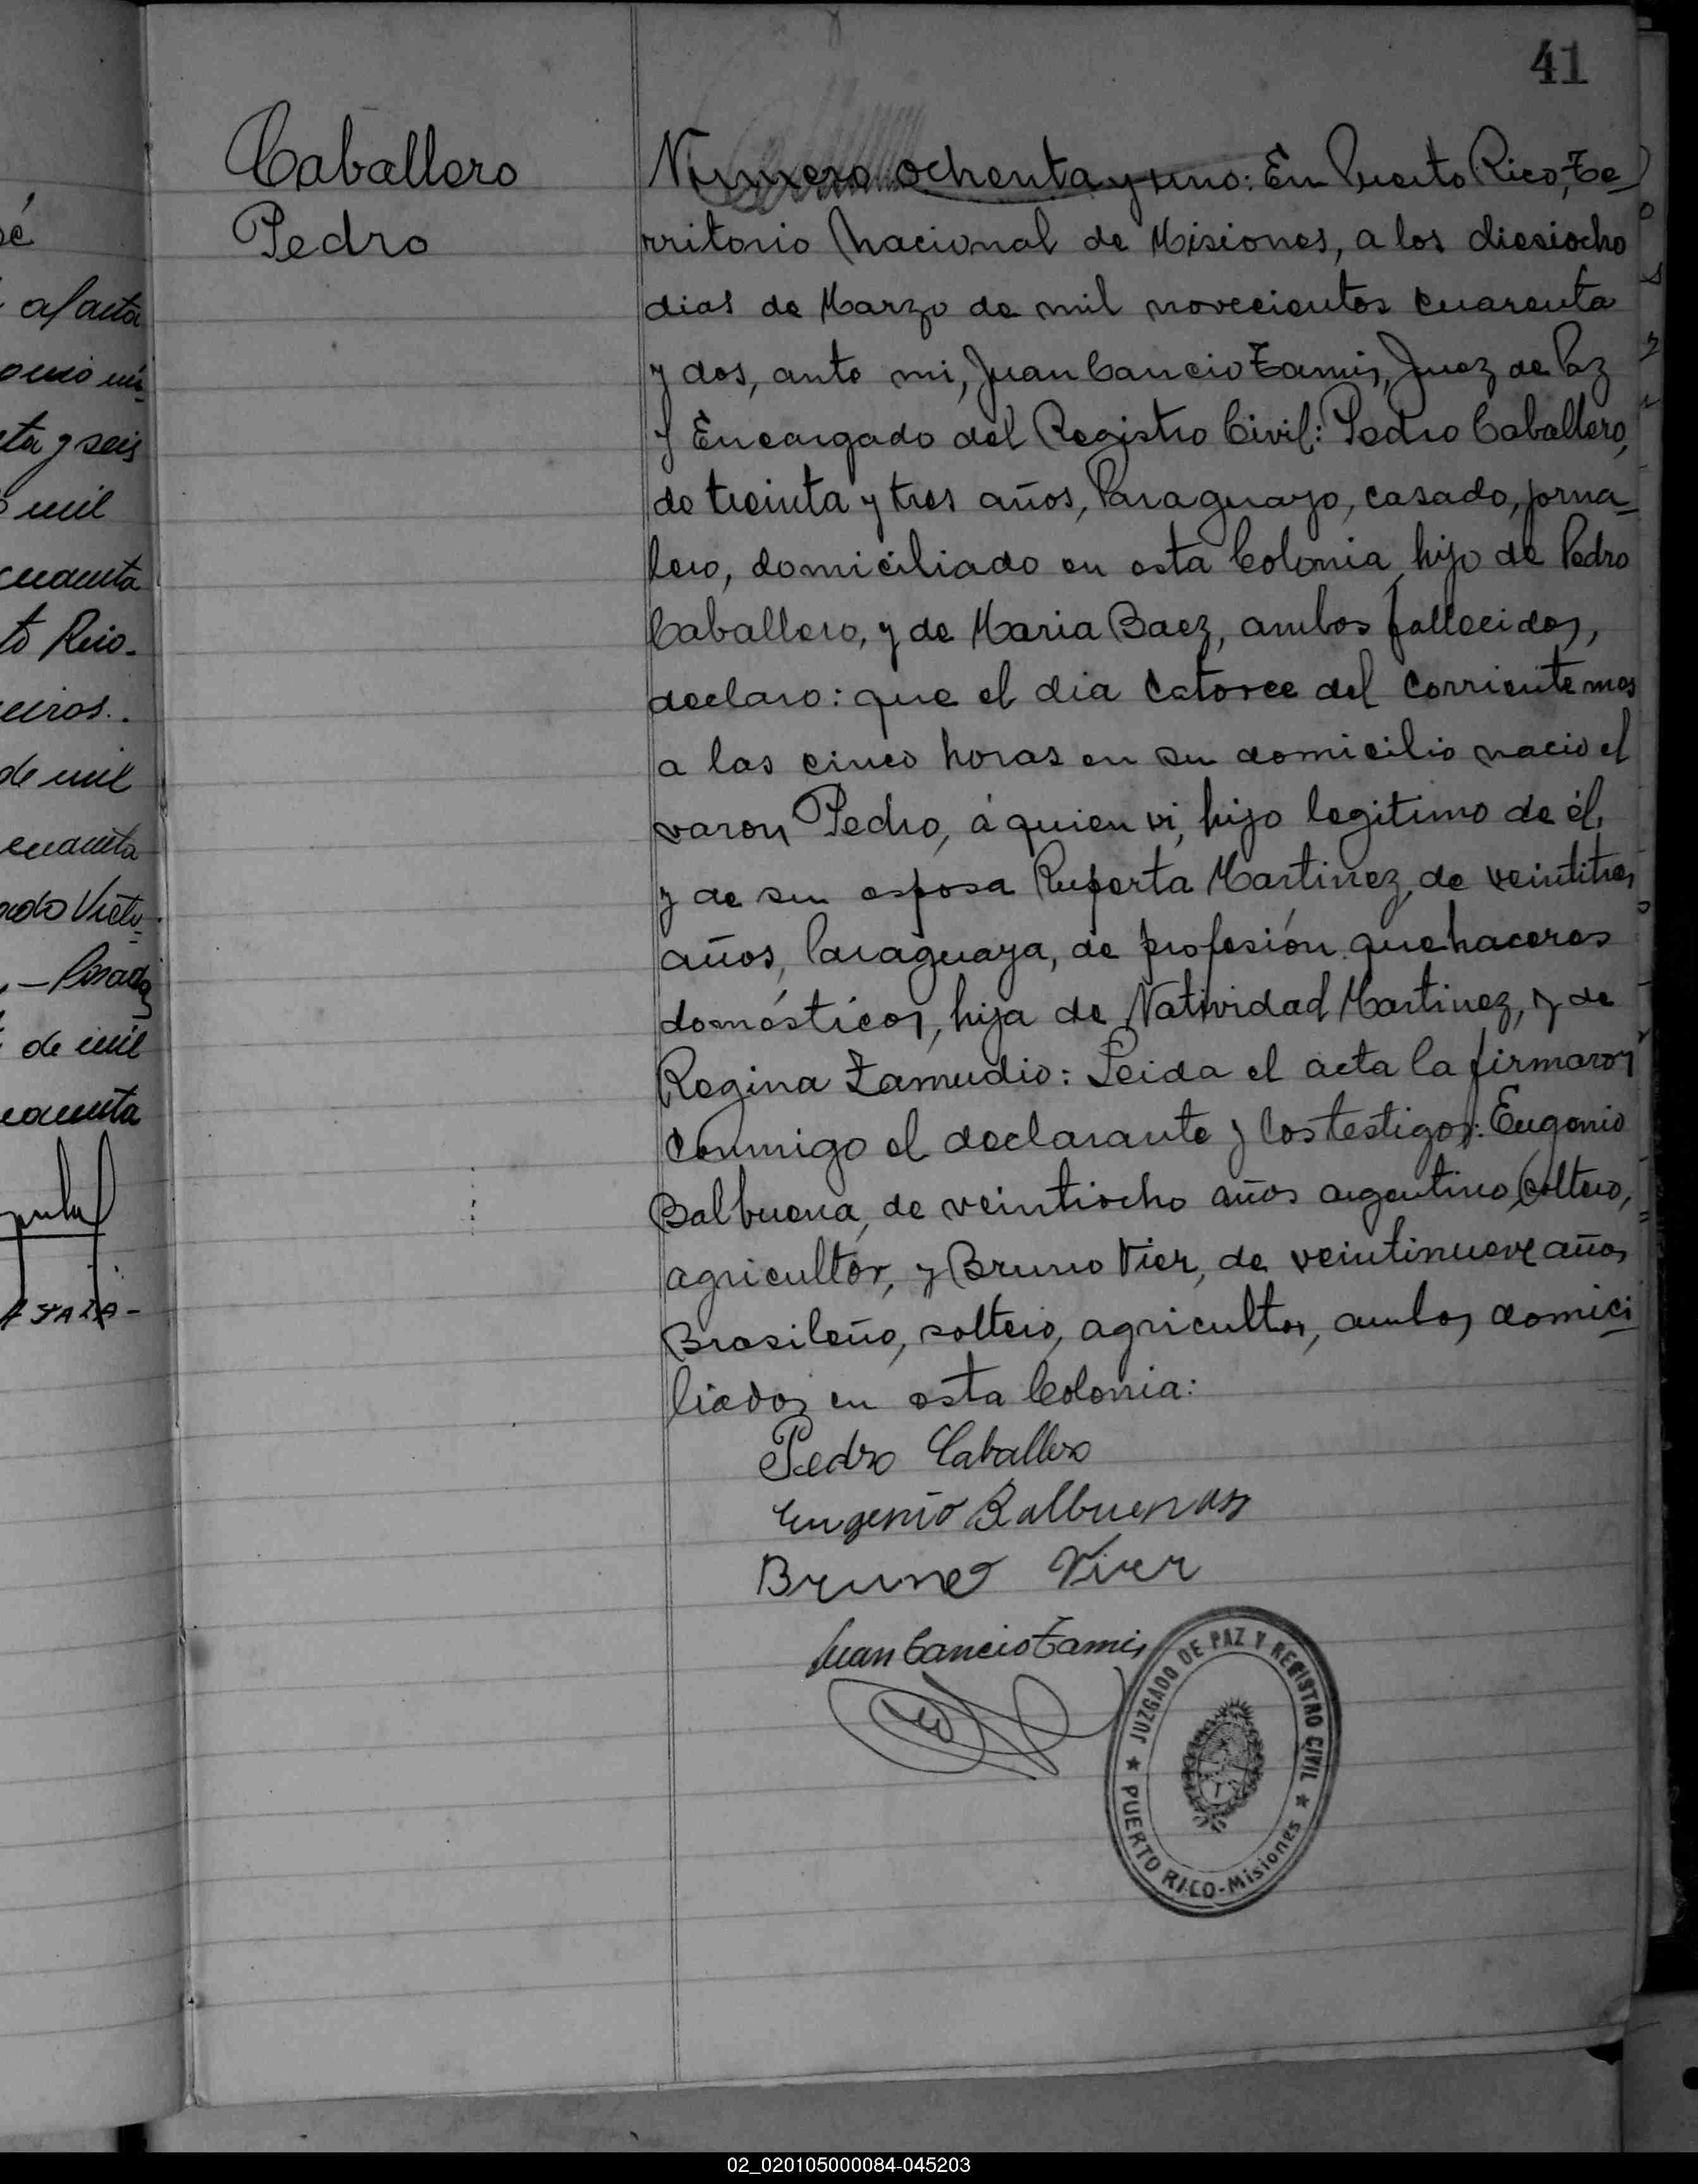 41
Caballero
Pedro
Numero ochenta y uno: En Puerto Rico, Te-
rritorio Nacional de Misiones, a los diesiocho
dias de Marzo de mil novecientos cuarenta
y dos, ante mi, Juan Cancio Tamis, Juez de Paz
y Encargado del Registro Civil: Pedro Caballero,
de treinta y tres años, Paraguayo, casado, jorna-
lero, domiciliado en esta Colonia, hijo de Pedro
Caballero, y de Maria Baez, ambos fallecidos,
declaro: que el dia catorce del corriente mes
a las cinco horas en su domicilio nacio el
varon Pedro, á quien vi, hijo legitimo de él,
y de su esposa Ruperta Martinez, de veintitres
años, Paraguaya, de profesión quehaceres
domésticos, hija de Natividad Martinez, y de
Regina Zamudio: Leida el acta la firmaron
conmigo el declarante y los testigos: Eugenio
Balbuena, de veintiocho años argentino, soltero,
agricultor, y Bruno Vier, de veintinueve años,
Brasileño, soltero, agricultor, ambos domici-
liados en esta Colonia:
Pedro Caballero
Eugenio Balbuena
Bruno Vier
Juan Cancio Tamis
JUZGADO DE PAZ Y REGISTRO CIVIL
PUERTO RICO-Misiones
al acta
ta y seis
mil
cuarenta
to Rico.
de mil
cuarenta
de mil
02_020105000084-045203